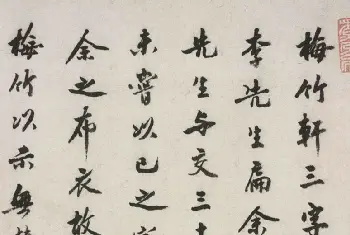 梅竹軒三字
李先生扁余
先生與交三十
未嘗以已之
余之布衣故
梅竹以示無